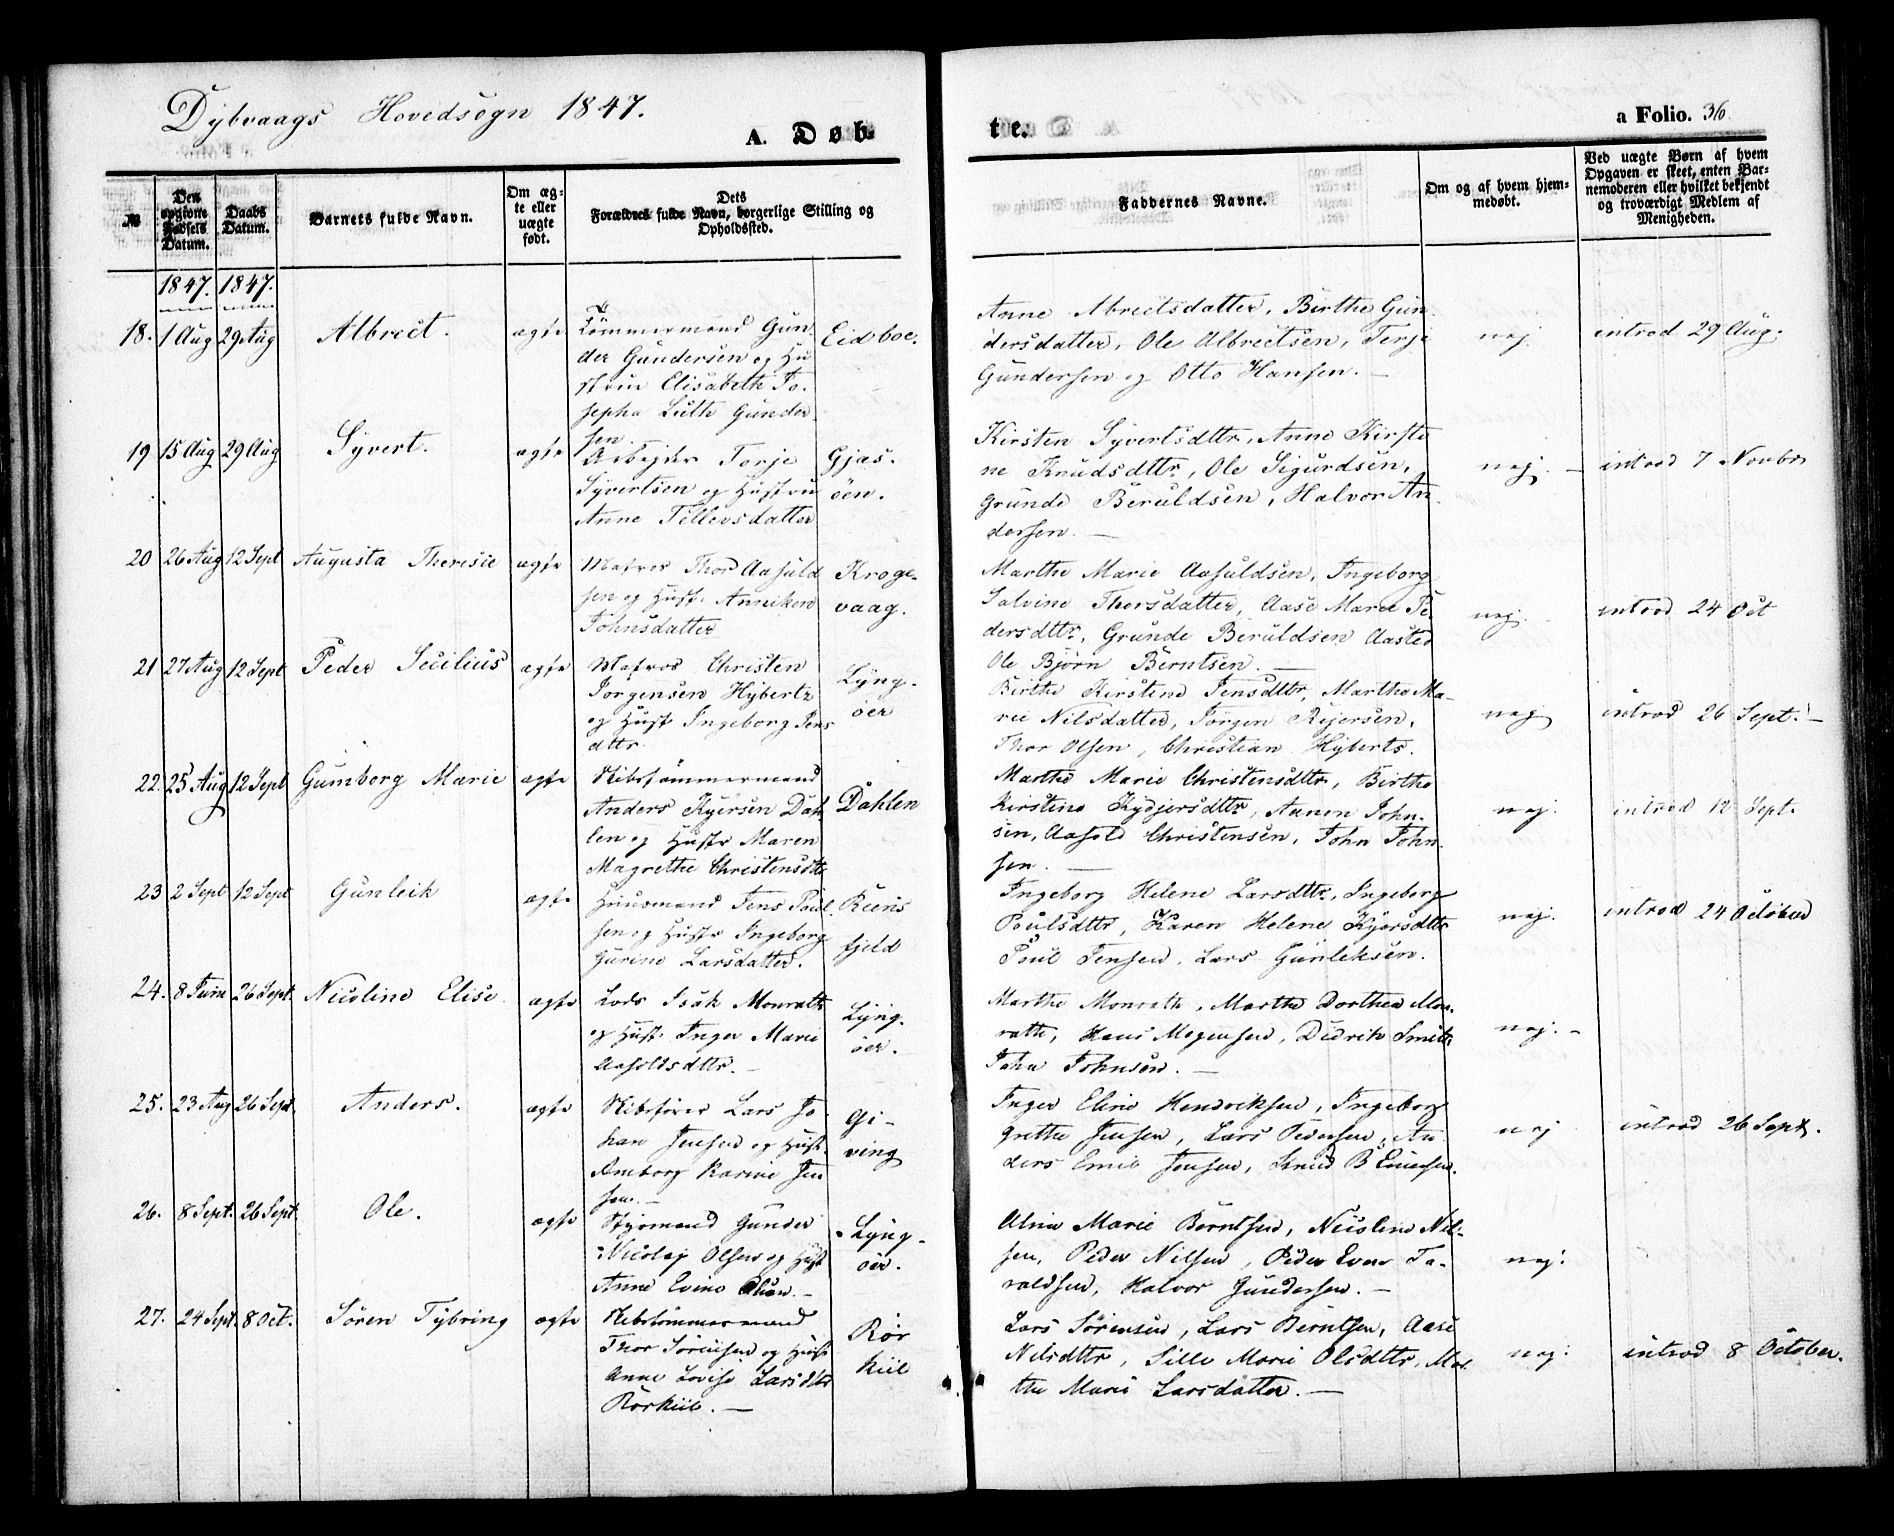 Dybvaags Hovedsogn 1847.
A. Døb-
te.
a Folio. 36.
№
Den opgivne Fødsels Datum.
Daabs Datum.
Barnets fulde Navn.
Om ægte eller uægte født.
Dets Forældres fulde Navn, borgerlige Stilling og Opholdssted.
Faddernes Navne.
Om og af hvem hjemmedøbt.
Ved uægte Børn af hvem
Opgaven er skeet, enten Bar-
nemoderen eller hvilket bekjendt
og troværdigt Medlem af
Menigheden.
1847. 1847.
18. 1 Aug 29 Aug Albrect. ægte
Tömmermand Gun
der Gundersen og Hu
strue Elisabeth Jo-
sepha Luth Gunder
sen.
Eidboe.
Anne Abrectsdatter, Birthe Gun
dersdatter, Ole Albrectsen, Terje
Gundersen og Otto Hansen. —
nej. introd 29 Aug.
19 15 Aug 29 Aug Syvert. ægte
Arbejder Torje
Syvertsen og Hustru
Anne Tellevsdatter
Gjæs-
öen.
Kirsten Syvertsdttr, Anne Kirsti
ne Knudsdttr, Ole Sigurdsen,
Grunde Beruldsen, Halvor An
dersen. —
nej. — introd 7 Novbr
20 26 Aug 12 Sept Augusta Theresie ægte
Matros Thor Aasuld
sen og Hust. Anniken
Johnsdatter
Kroge-
vaag.
Marthe Marie Aasuldsen, Ingeborg
Salvine Thorsdatter, Aase Marie Pe
dersdttr, Grunde Beruldsen Aasted
Ole Björn Berntsen. —
nej. introd 24 Oct
21 27 Aug 12 Sept Peder Secilius ægte
Matros Christen
Jörgensen Hybertz
og Hust Ingeborg Jens
dttr.
Lyng-
öer
Birthe Kirstine Jensdttr, Marthe Ma-
rie Nilsdatter, Jörgen Rejersen,
Thor Olsen, Christian Hyberts.
nej introd 26 Sept. —
22. 25 Aug 12 Sept Gumborg Marie ægte
Skibstömmermand
Anders Kyersen Dah
len og Hustr Maren
Magrethe Christensdttr
Dahlen
Marthe Marie Christensdttr, Birthe
Kirstine Kydjersdttr, Annen John-
sen, Aasold Christensen, John John
sen. —
nej. introd 12 Sept.
23 2 Sept 12 Sept Gunleik ægte
Huusmand Jens Poul
sen og Hustr Ingeborg
Gurine Larsdatter.
fjeld
Ingeborg Helene Larsdttr, Ingeborg
Poulsdttr, Karen Helene Kjersdttr
Poul Jensen, Lars Gunleksen.
nej. introd 24 October
24. 8 Juni 26 Sept. Nicoline Elise. ægte
Lods Isak Monrath
og Hust. Inger Marie
Aasoldsdttr. —
Lyng-
öer.
Marthe Monrath, Marthe Dorthea Mon-
rath, Hans Mogensen, Didrik Smith
John Johnsen. —
nej. —
25. 23 Aug 26 Sept. Anders. ægte
Skibsförer Lars Jo
han Jensen og Hust.
Amborg Karine Jen
sen. —
Gi-
ving
Inger Eline Hendriksen, Ingeborg
Grethe Jensen, Lars Pedersen, An
ders Emil Jensen, Knud B Einersen.
nej introd 26 Sept.
26. 8 Sept. 26 Sept. Ole. ægte
Styrmand Gunder
Nicolaj Olsen og Hust
Anne Evine Olsen. —
Lyng-
öer.
Aline Marie Berntsen, Nicoline Nil-
sen, Peder Nilsen, Peder Even Ta-
raldsen, Halvor Gundersen. —
nej.
27. 24 Sept. 8 Oct. Sören Tybring ægte
Skibstömmermand
Thor Sörensen og Hust
Anne Lovise Larsdttr
Rörkiil. —
Rör
kiil
Lars Sörensen, Lars Berntsen, Aase
Nilsdttr, Sille Marie Olsdttr, Mar-
the Marie Larsdatter. —
nej. introd 8 October.